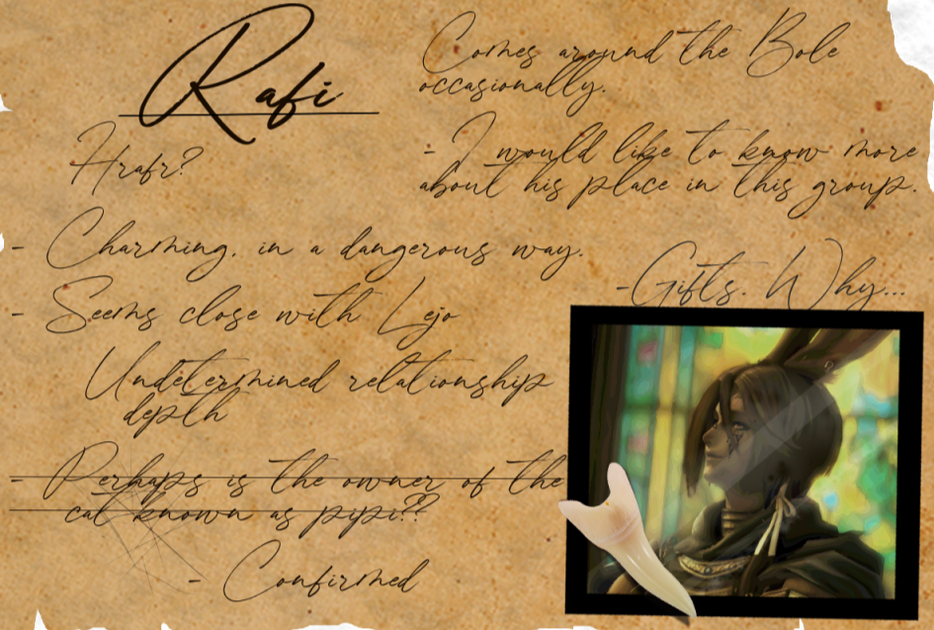 Rafi
Hrafr?
- Charming, in a dangerous way.
- Seems close with Lejo
Undetermined relationship
depth
- Perhaps is the owner of the
cat known as pipi??
- Confirmed
Comes around the Bole
occasionally.
- I would like to know more
about his place in this group.
- Gifts. Why...